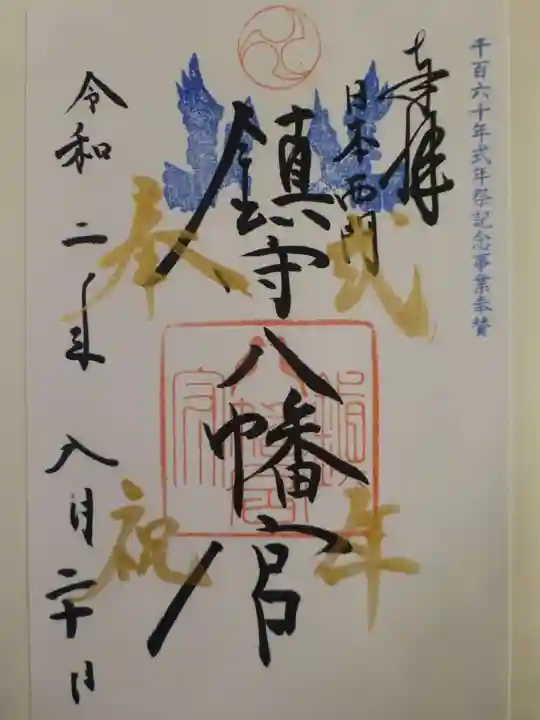 千百六十年式年祭記念事業奉賛
奉拝
日本西門
鎮守八幡宮
式年
奉祝
令和二年
八月二十日